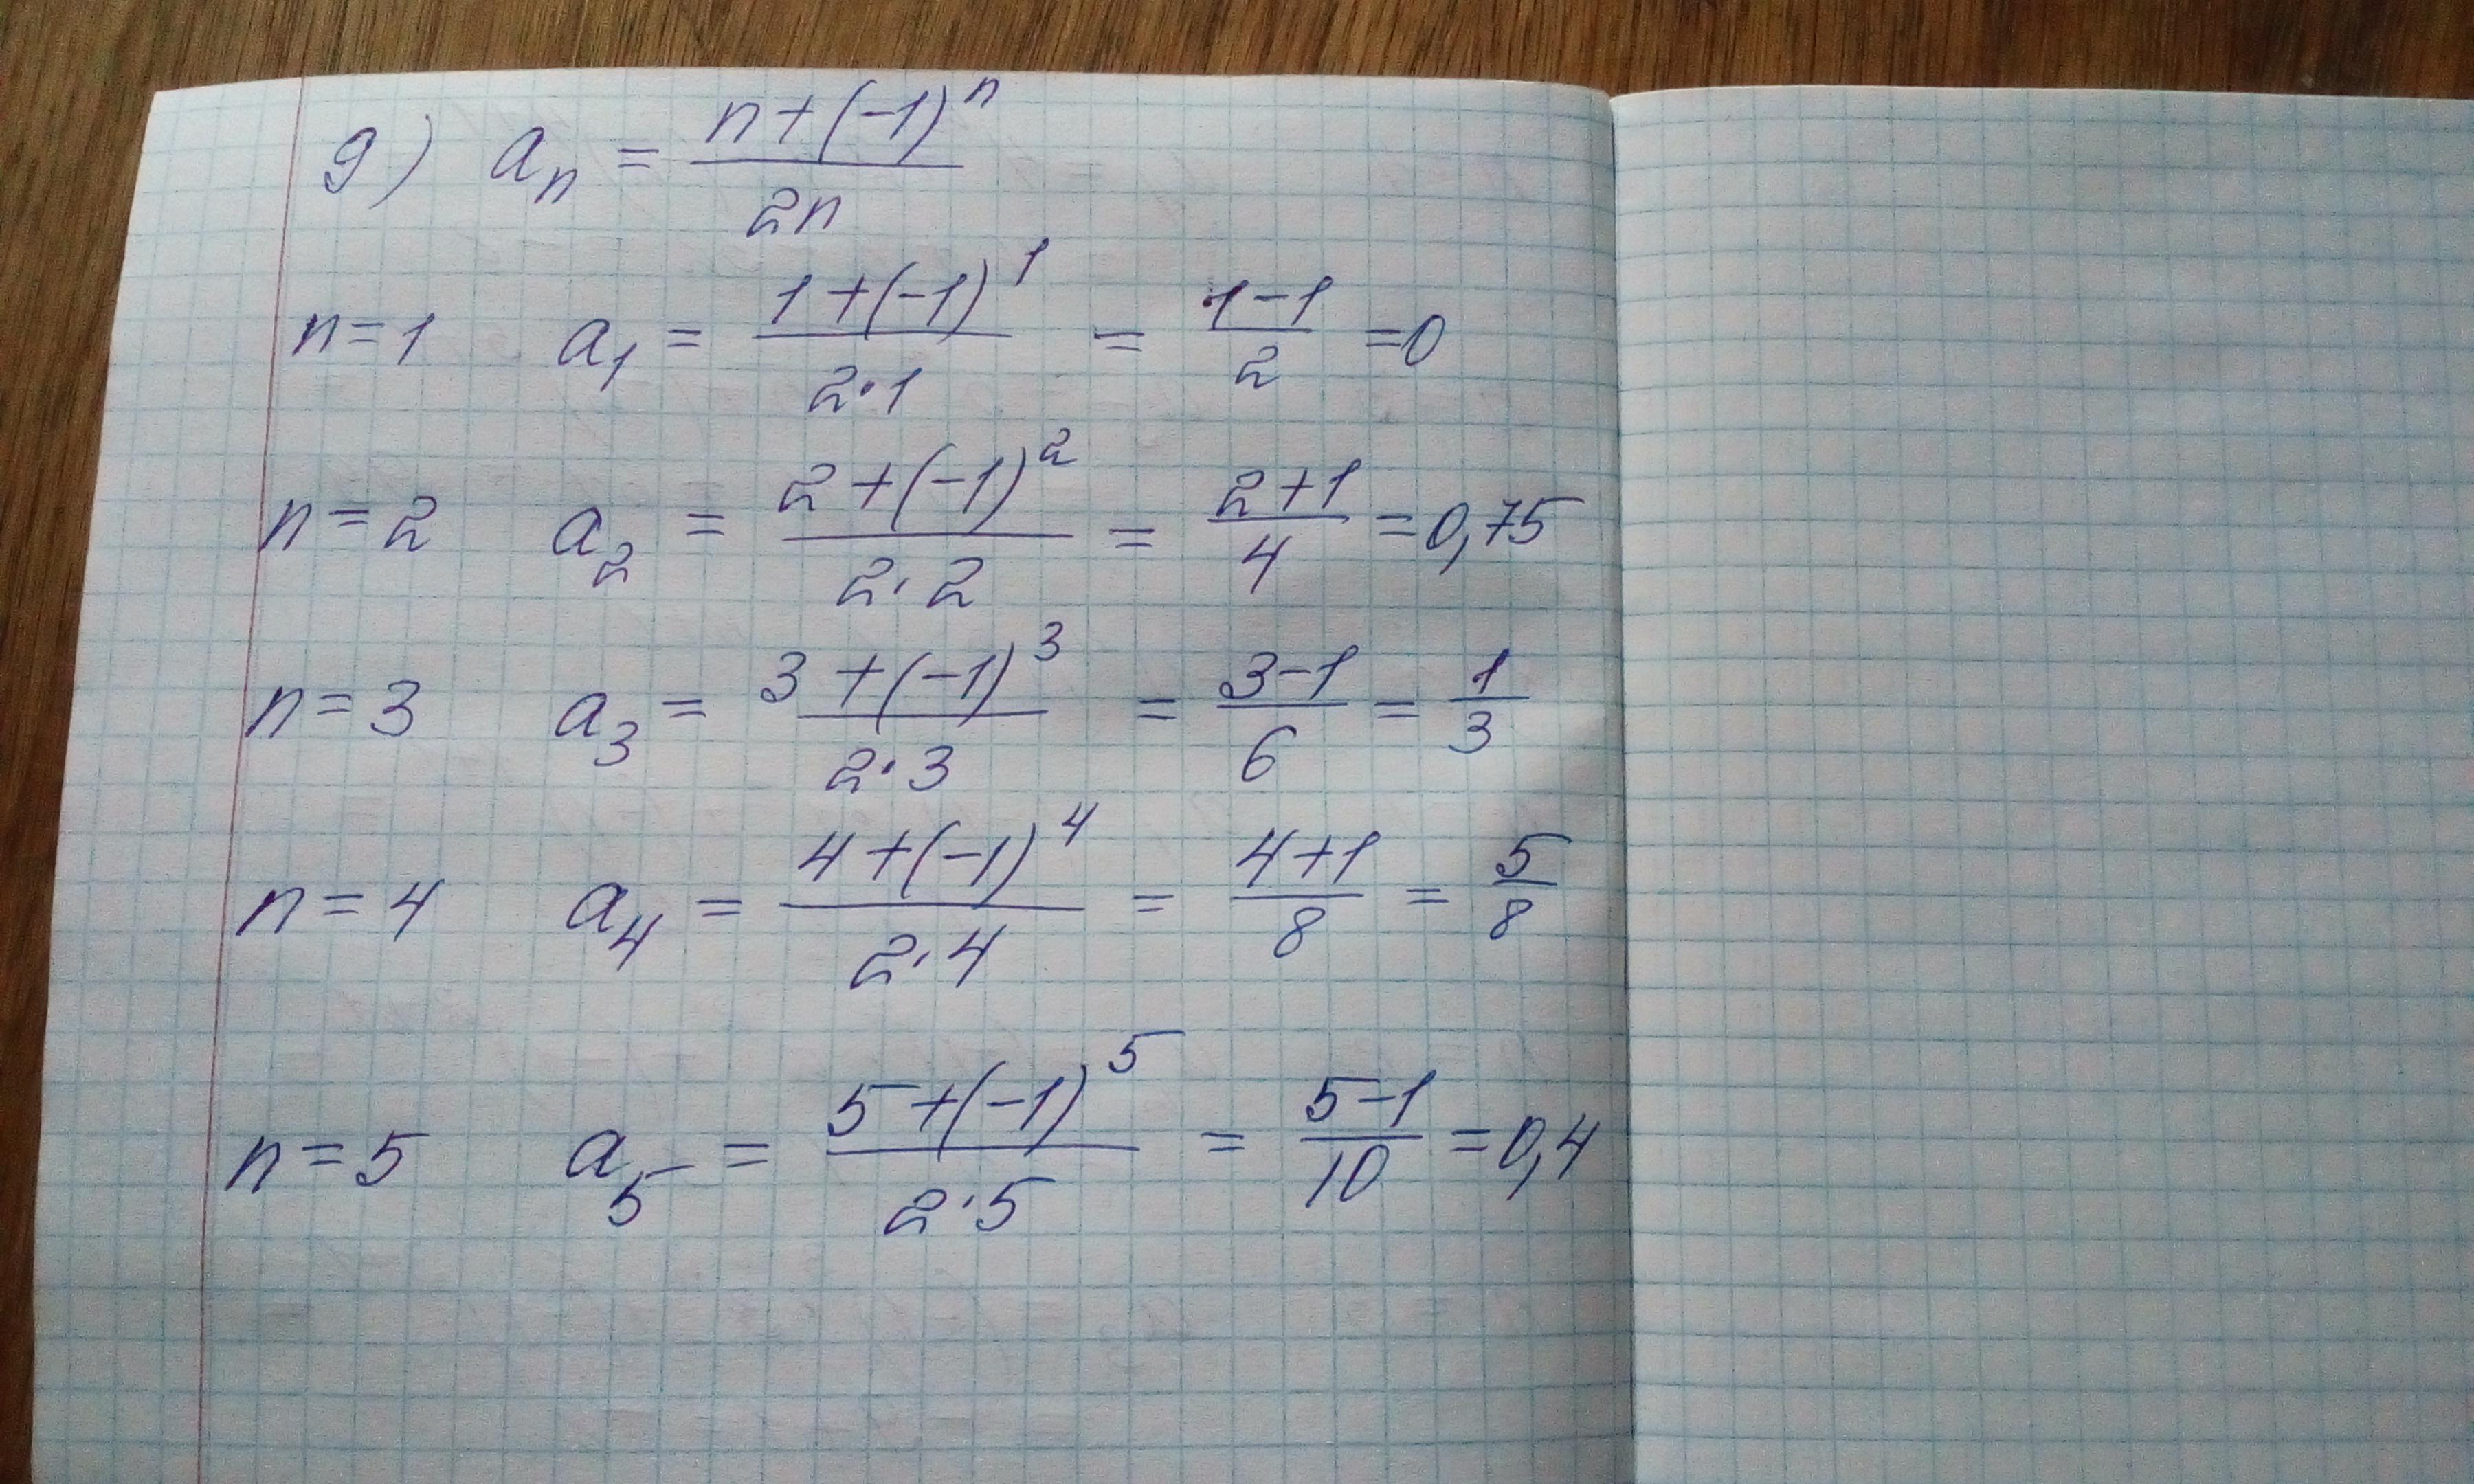 g) aₙ = (n+(-1)ⁿ)/(2n)
n=1 a₁ = (1+(-1)¹)/(2·1) = (1-1)/2 =0
n=2 a₂ = (2+(-1)²)/(2·2) = (2+1)/4 =0,75
n=3 a₃ = (3+(-1)³)/(2·3) = (3-1)/6 = 1/3
n=4 a₄ = (4+(-1)⁴)/(2·4) = (4+1)/8 = 5/8
n=5 a₅ = (5+(-1)⁵)/(2·5) = (5-1)/10 =0,4